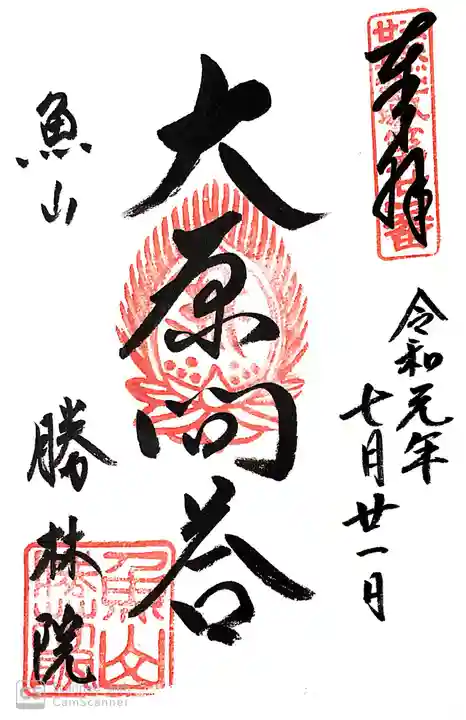 奉拝
令和元年
七月廿一日
大原問答
魚山
勝林院
魚山
CamScanner